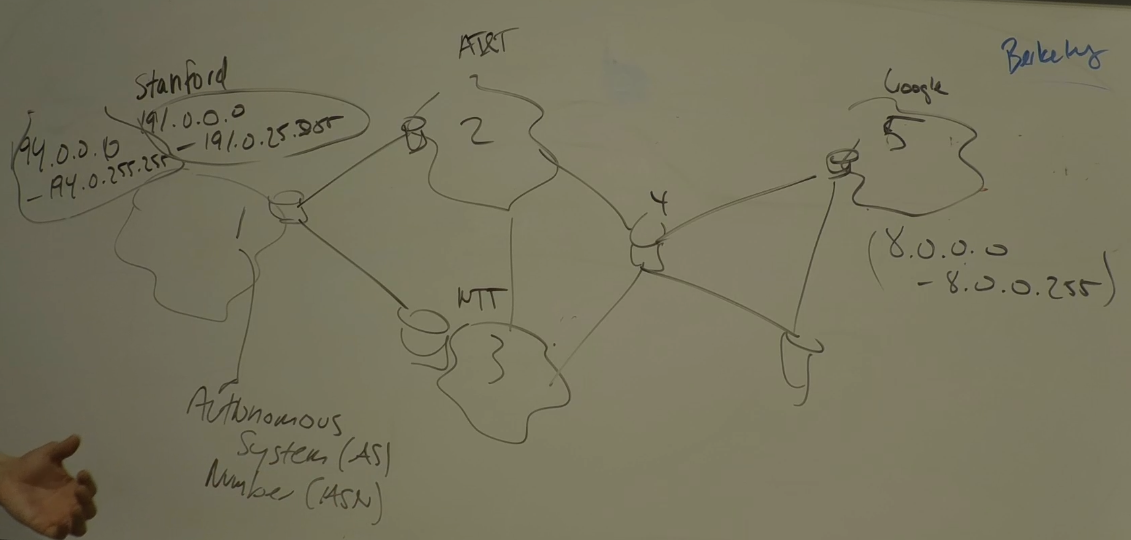 AT&T
Berkeley
Stanford
Google
191.0.0.0
- 191.0.25.255
94.0.0.0
- 94.0.255.255
2
5
1
4
(8.0.0.0
- 8.0.0.255)
NTT
3
Autonomous
System (AS)
Number (ASN)